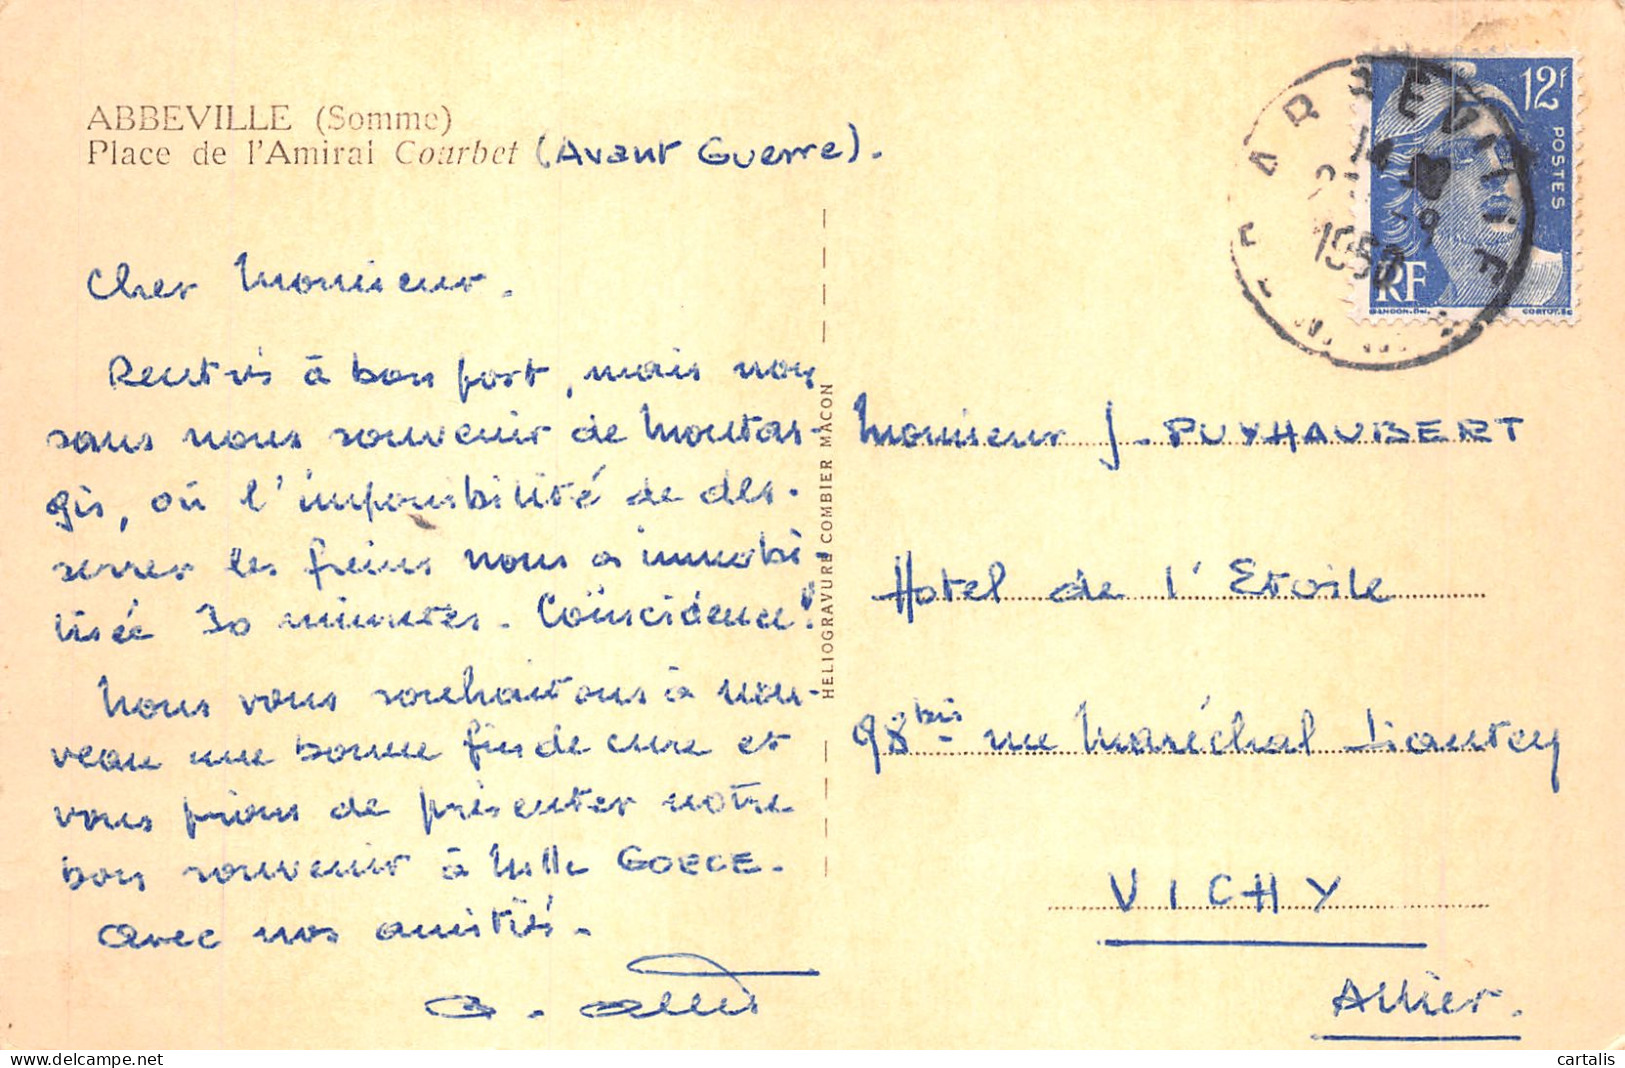 ABBEVILLE (Somme)
Place de l'Amiral Courbet (Avant Guerre).
Cher Monsieur.
Rentrés à bon port, mais non
sans nous souvenir de Montar-
gis, où l'impossibilité de des-
serrer les freins nous a immobi-
lisée 30 minutes. Coïncidence!
Nous vous souhaitons à nou-
veau une bonne fin de cure et
vous prions de présenter notre
bon souvenir à Melle GOECE.
Avec nos amitiés.
HELIOGRAVURE COMBIER MACON
12F
POSTES
RF
GANDON.Del.
CORTOT.Sc
ABBEVILLE
1950
Monsieur J. PUYHAUBERT
Hotel de l'Etoile
98bis rue Maréchal Liautey
VICHY
Allier.
cartalis